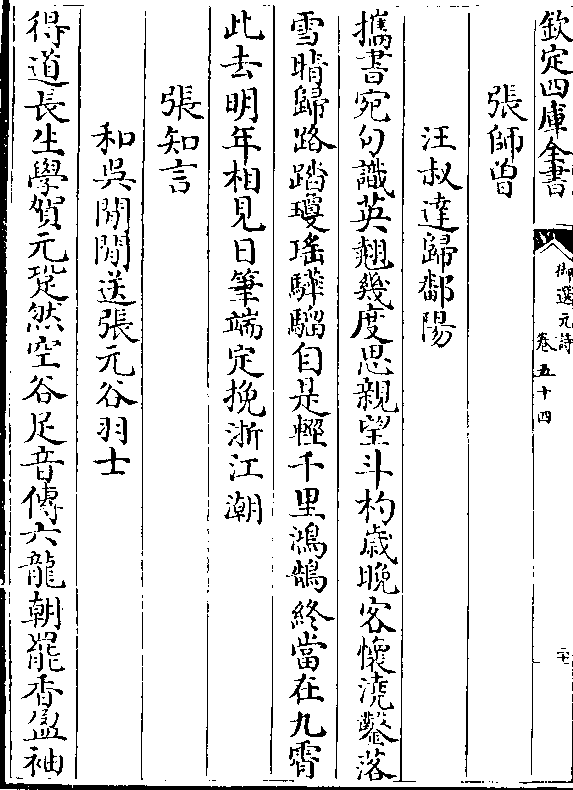 欽定四庫全書
御選元詩
卷五十四
張師曽
汪叔達歸鄱陽
攜書宛句識英翹幾度思親望斗杓歲晚客懷澆鑿落
雪晴歸路踏瓊瑶驊騮自是輕千里鴻鵠終當在九霄
此去明年相見日筆端定挽浙江潮
張知言
和吳閒閒送張元谷羽士
得道長生學賀元跫然空谷足音傳六龍朝罷香盈袖